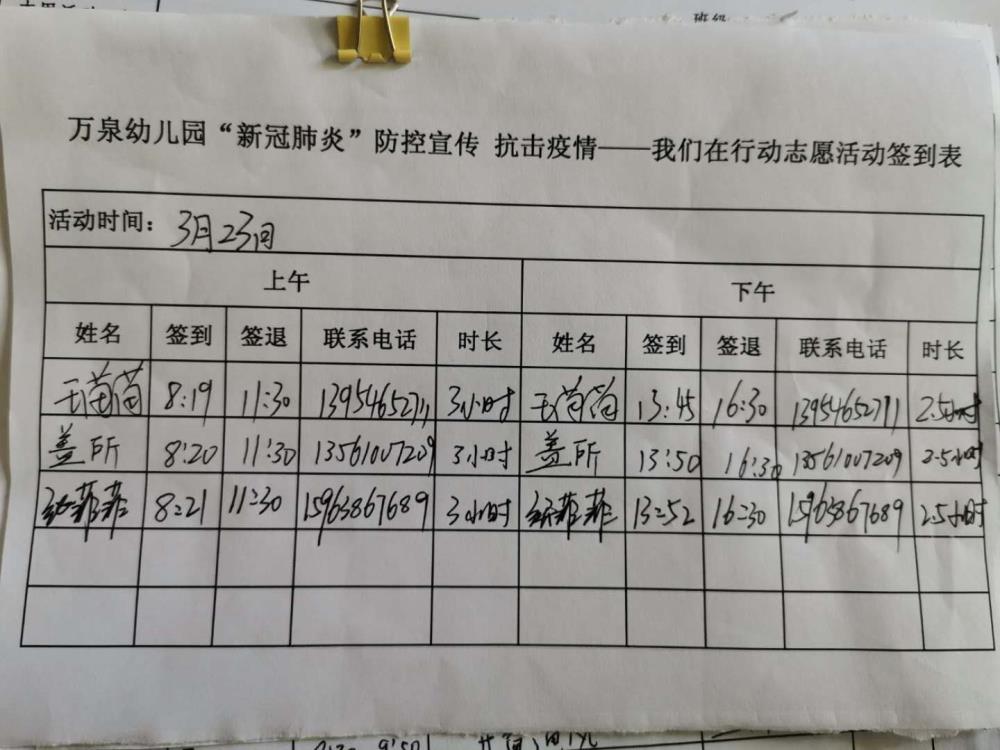 班级
万泉幼儿园“新冠肺炎”防控宣传 抗击疫情——我们在行动志愿活动签到表
活动时间：3月23日
上午 下午
姓名 签到 签退 联系电话 时长 姓名 签到 签退 联系电话 时长
王苗苗 8:19 11:30 13954652711 3小时 王苗苗 13:45 16:30 13954652711 2.5小时
盖所 8:20 11:30 13561007209 3小时 盖所 13:50 16:30 13561007209 2.5小时
菲菲 8:21 11:30 15963867689 3小时 菲菲 13:52 16:30 15963867689 2.5小时